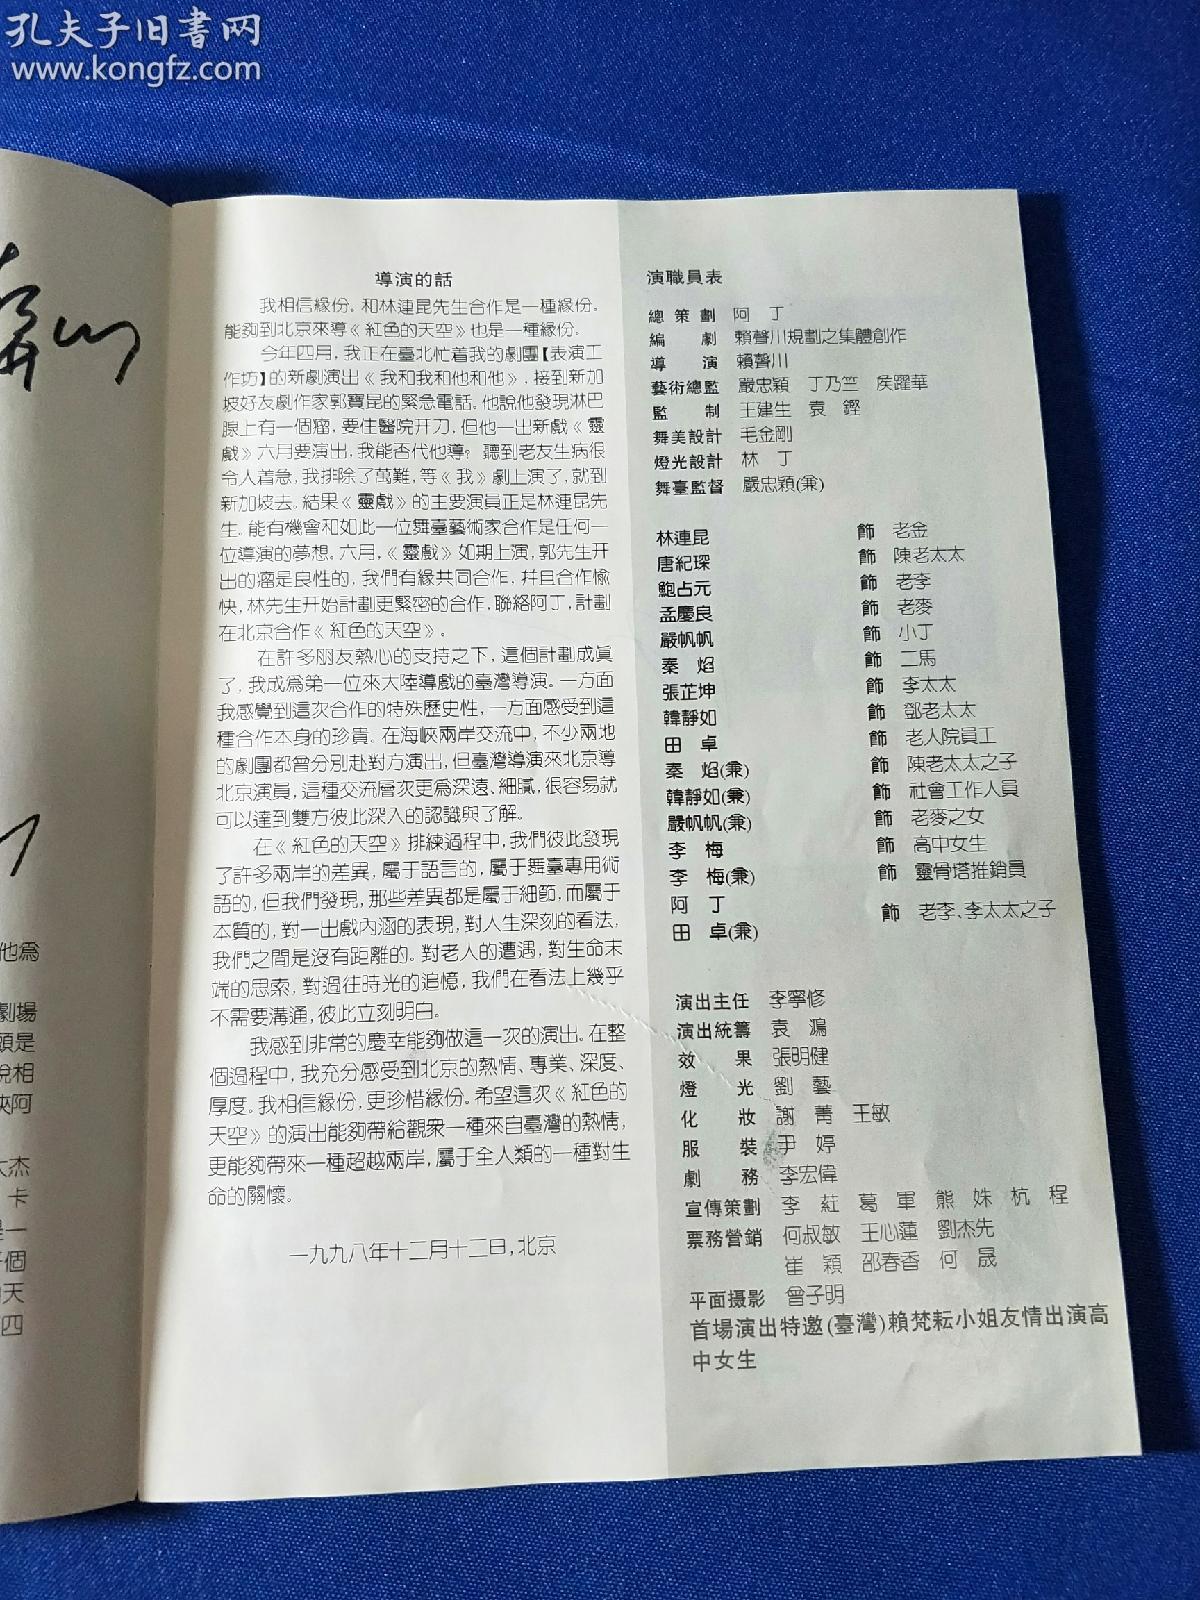 孔夫子旧書网
www.kongfz.com
他爲
劇場
頭是
說相
夾阿
大杰
卡
是一
個
天
四
導演的話
我相信緣份。和林連昆先生合作是一種緣份。
能夠到北京來導《紅色的天空》也是一種緣份。
今年四月,我正在臺北忙着我的劇團【表演工
作坊】的新劇演出《我和我和他和他》,接到新加
坡好友劇作家郭寶昆的緊急電話。他說他發現淋巴
腺上有一個瘤,要住醫院开刀,但他一出新戲《靈
戲》六月要演出,我能否代他導?聽到老友生病很
令人着急,我排除了萬難,等《我》劇上演了,就到
新加坡去。結果《靈戲》的主要演員正是林連昆先
生。能有機會和如此一位舞臺藝術家合作是任何一
位導演的夢想。六月,《靈戲》如期上演,郭先生开
出的瘤是良性的,我們有緣共同合作,并且合作愉
快,林先生开始計劃更緊密的合作,聯絡阿丁,計劃
在北京合作《紅色的天空》。
在許多朋友熱心的支持之下,這個計劃成真
了,我成爲第一位來大陸導戲的臺灣導演。一方面
我感覺到這次合作的特殊歷史性,一方面感受到這
種合作本身的珍貴。在海峽兩岸交流中,不少兩地
的劇團都曾分別赴對方演出,但臺灣導演來北京導
北京演員,這種交流層次更爲深遠、細膩,很容易就
可以達到雙方彼此深入的認識與了解。
在《紅色的天空》排練過程中,我們彼此發現
了許多兩岸的差異,屬于語言的,屬于舞臺專用術
語的,但我們發現,那些差異都是屬于細節,而屬于
本質的,對一出戲內涵的表現,對人生深刻的看法,
我們之間是沒有距離的。對老人的遭遇,對生命末
端的思索,對過往時光的追憶,我們在看法上幾乎
不需要溝通,彼此立刻明白。
我感到非常的慶幸能夠做這一次的演出。在整
個過程中,我充分感受到北京的熱情、專業、深度、
厚度。我相信緣份,更珍惜緣份。希望這次《紅色的
天空》的演出能夠帶給觀衆一種來自臺灣的熱情,
更能夠帶來一種超越兩岸,屬于全人類的一種對生
命的關懷。
一九九八年十二月十二日,北京
演職員表
總策劃 阿丁
編劇 賴聲川規劃之集體創作
導演 賴聲川
藝術總監 嚴忠穎 丁乃竺 侯躍華
監制 王建生 袁鏗
舞美設計 毛金剛
燈光設計 林丁
舞臺監督 嚴忠穎(兼)
林連昆 飾 老金
唐紀琛 飾 陳老太太
鮑占元 飾 老李
孟慶良 飾 老麥
嚴帆帆 飾 小丁
秦焰 飾 二馬
張芷坤 飾 李太太
韓靜如 飾 鄧老太太
田卓 飾 老人院員工
秦焰(兼) 飾 陳老太太之子
韓靜如(兼) 飾 社會工作人員
嚴帆帆(兼) 飾 老麥之女
李梅 飾 高中女生
李梅(兼) 飾 靈骨塔推銷員
阿丁
田卓(兼) 飾 老李、李太太之子
演出主任 李寧修
演出統籌 袁鴻
效果 張明健
燈光 劉藝
化妝 謝菁 王敏
服裝 尹婷
劇務 李宏偉
宣傳策劃 李紅 葛軍 熊姝 杭程
票務營銷 何叔敏 王心蓮 劉杰先
崔穎 邵春香 何晟
平面攝影 曾子明
首場演出特邀(臺灣)賴梵耘小姐友情出演高
中女生